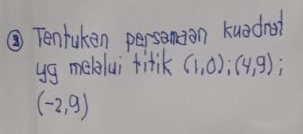 ③ Tentukan persamaan kuadrat
yg melalui titik (1,0); (4,9);
(-2,9)